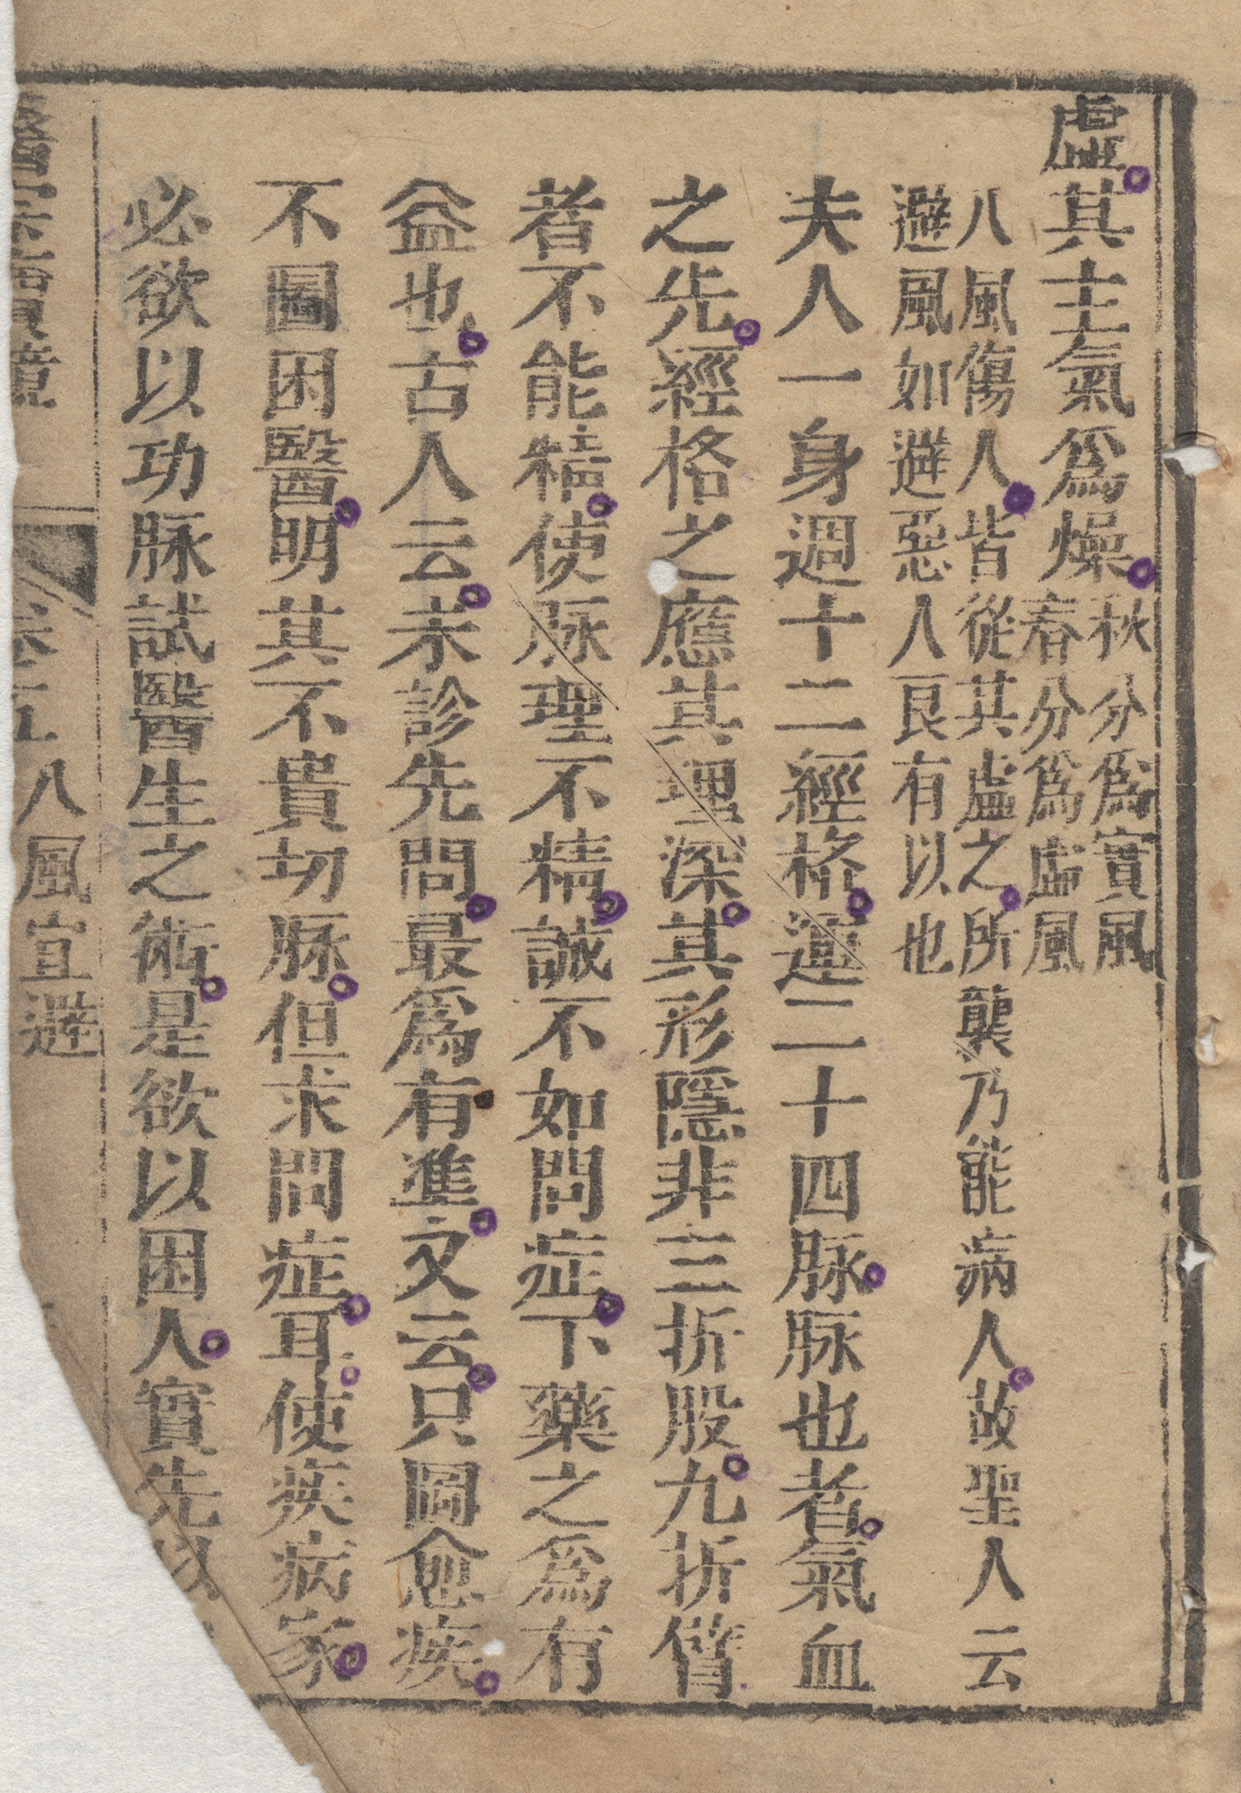 虛其主氣爲燥秋分爲實風
春分爲虛風
八風傷人皆從其虛之所襲乃能病人故聖人云
避風如避惡人艮有以也
夫人一身週十二經格運二十四脉脉也者氣血
之先經格之應其理深其形隱非三折股九折臂
者不能精使脉理不精誠不如問症下藥之爲有
益也古人云未診先問最爲有進文云只圖愈疾
不圖困醫明其不貴切脉但求問症耳使疾病家
必欲以功脉試醫生之術是欲以困人實先以
寶鏡
卷五
八風宜避